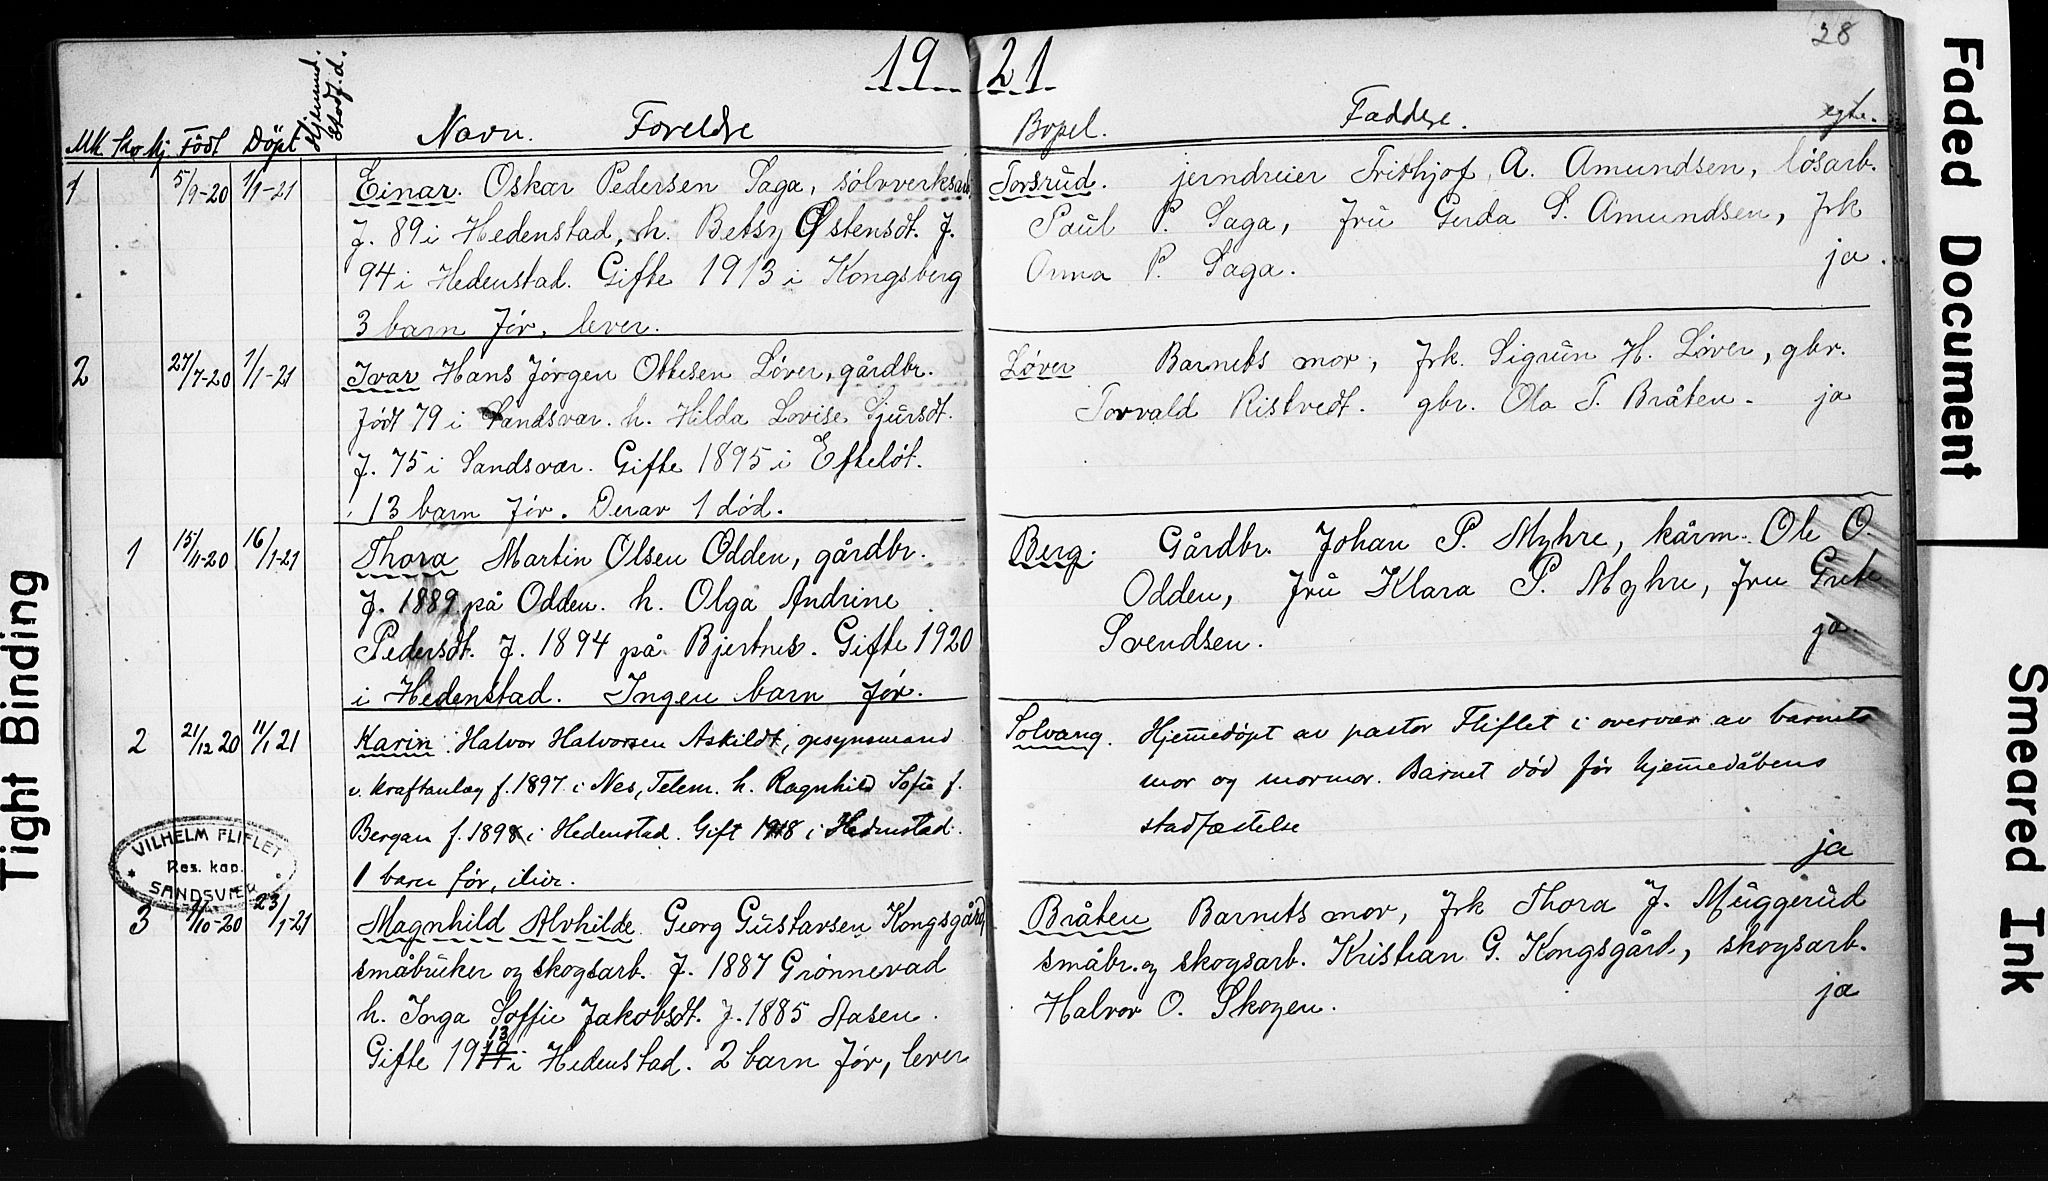 19 21
28
Mk. Kv. kj. Födt Döpt Hjemmed. Stadf. d. Navn. Foreldre Bopel. Faddere. egte.
1 5/9-20 1/1-21 Einar. Oskar Pedersen Saga, sølvverksarb. Torsrud. jerndreier Frithjof A. Amundsen, løsarb.
f. 89 i Hedenstad, h. Betsy Østensdt. f. Paul P. Saga, fru Gerda S. Amundsen, frk
94 i Hedenstad. Gifte 1913 i Kongsberg Anna P. Saga. ja.
3 barn før, lever.
2 27/7-20 1/1-21 Ivar Hans Jørgen Ottesen Löver, gårdbr. Löver Barnets mor, frk. Sigrun H. Löver, gbr.
født 79 i Sandsvær. h. Hilda Lovise Sjursdt. Torvald Ristvedt. gbr. Ola T. Bråten. ja
f. 75 i Sandsvær. Gifte 1895 i Efteløt.
13 barn før. Derav 1 død.
1 15/11-20 16/1-21 Thora Martin Olsen Odden, gårdbr. Berg. Gårdbr. Johan P. Myhre, kårm. Ole O.
f. 1889 på Odden. h. Olga Andrine Odden, fru Klara P. Myhre, fru Grete
Pedersdt. f. 1894 på Bjertnes. Gifte 1920 Svendsen. ja
i Hedenstad. Ingen barn før.
2 21/12 20 11/1 21 Karin Halvor Halvorsen Askildt, opsynsmand Solvang. Hjemmedøpt av pastor Fliflet i overvær av barnets
v. kraftanlæg f. 1897 i Nes, Telem. h. Ragnhild Sofie f. mor og mormor. Barnet død før hjemmedåbens
Bergan f. 1898 i Hedenstad. Gift 1918 i Hedenstad. stadfæstelse
1 barn før, ilive. ja
VILHELM FLIFLET
Res. kap.
SANDSVÆR
3 9/10-20 23/1-21 Magnhild Alvhilde Georg Gustavsen Kongsgård Bråten Barnets mor, frk Thora J. Muggerud
småbruker og skogsarb. f. 1887 Grønnevad småbr. og skogsarb. Kristian G. Kongsgård, skogsarb.
h. Inga Soffie Jakobsdt. f. 1885 Aasen. Halvor O. Skogen. ja
Gifte 1913 i Hedenstad. 2 barn før, lever
Tight Binding
Faded Document
Smeared Ink